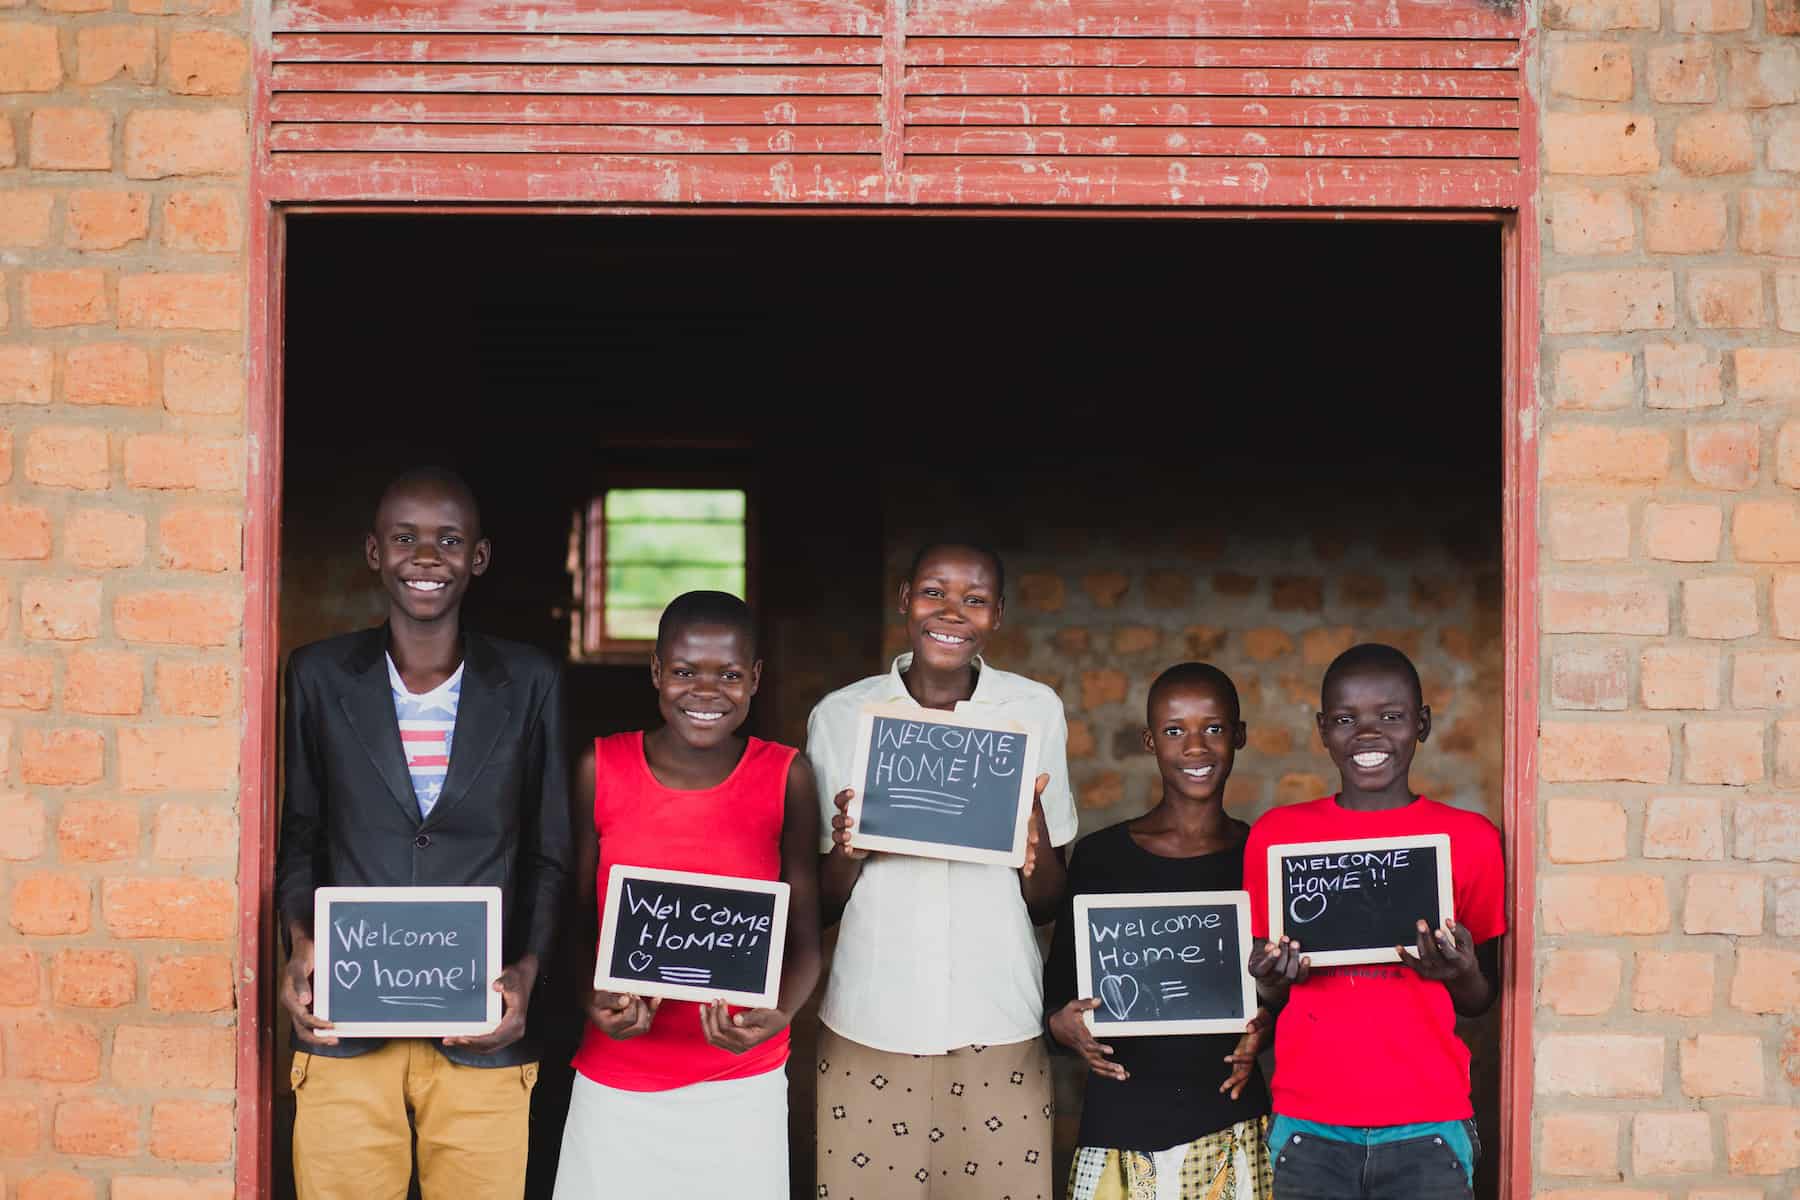 Welcome
♡ home!
Welcome
Home!!
♡
WELCOME
HOME! ☺
Welcome
Home!
♡
WELCOME
HOME!!
♡